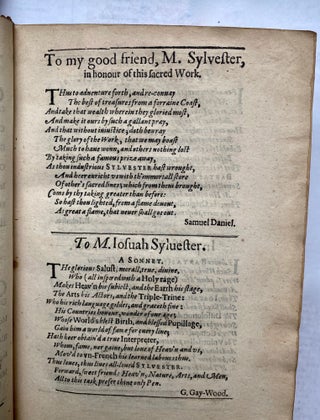 To my good friend, M. Sylvester,
in honour of this sacred Work.
THus to adventure forth, and re-convay
The best of treasures from a forraine Coast,
And take that wealth wherein they gloried most,
And make it ours by such a gallant pray,
And that without iniustice; doth bewray
The glory of the Work, that we may boast
Much to haue wonn, and others nothing lost
By taking such a famous prize away,
As thou industrious SYLVESTER hast wrought,
And heer enricht vs with th'immortall store
Of others sacred lines; which from them brought,
Coms by thy taking greater than before:
So hast thou lighted, from a flame devout,
As great a flame, that never shall goe out.
Samuel Daniel.
To M. Iosuah Syluester.
A SONNET.
THe glorious Salust, morall, true, divine,
Who (all inspired with a Holy rage)
Makes Heav'n his subiect, and the Earth his stage,
The Arts his Actors, and the Triple-Trine:
Who his rich language gilds, and graceth fine;
His Countries honour, wonder of our age;
Whose World's Holy Birth, and blessed Pupillage,
Gain him a world of fame for every line;
Hath heer obtain'd a true Interpreter,
Whom, fame, nor gaine, but loue of Heav'n and vs,
Mov'd to vn-French his learned labours thus.
Thus loues, thus liues all-lend SYLVESTER.
Forward, sweet friend: Heav'n, Nature, Arts, and Men,
All to this task prefer thine only Pen.
G. Gay-Wood.